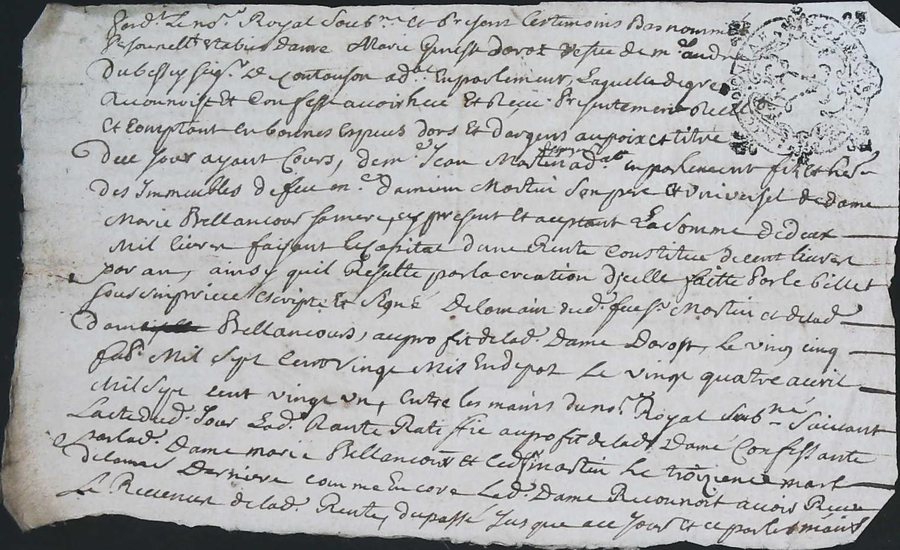 Royal Soub.né et present Les témoins Bas nommé
Dame Marie
Du Sieur de en parlement, Laquelle de gré
Reconnoist et Confesse avoir heu et Receu Presentement
Et Comptant en bonnes Especes dors et dargent au poix et titre
De ce Jour ayant Cours, de m.e Jean Mostin ad.at en parlement fils et her.
Des Immeubles de feu m.e Damien Mostin Son pere et universel de dame
Marie Bellancour sa mere, cy present et aceptant La Somme de deux
Mil livres faisant le Capital dune Rente Constitue de cent livres
par an, ainsy quil Resulte par la creation dicelle faitte Par le billet
sous sin privé Escripte et Signé De la main dud. feu Sr Mostin et de lad.
Dame Bellancours, au profit de lad. Dame Davost, le vint cinq
Mil Sept Cent vingt Mis En depot Le vingt quatre avril
Mil Sept cent vingt un, Entre les mains du no.re Royal Soub.né Suivant
Lacte dud. Jour Lad. Rante Ratiffie au profit de lad. Dame Confessante
par lad. Dame marie Bellancours et led. Sr mostin Le troizieme mars
Derniere comme Encore Lad. Dame Reconnoit avoir Receu
Le Reveneu de lad. Rente, du passé Jusque a ce Jour Et ce par les mains